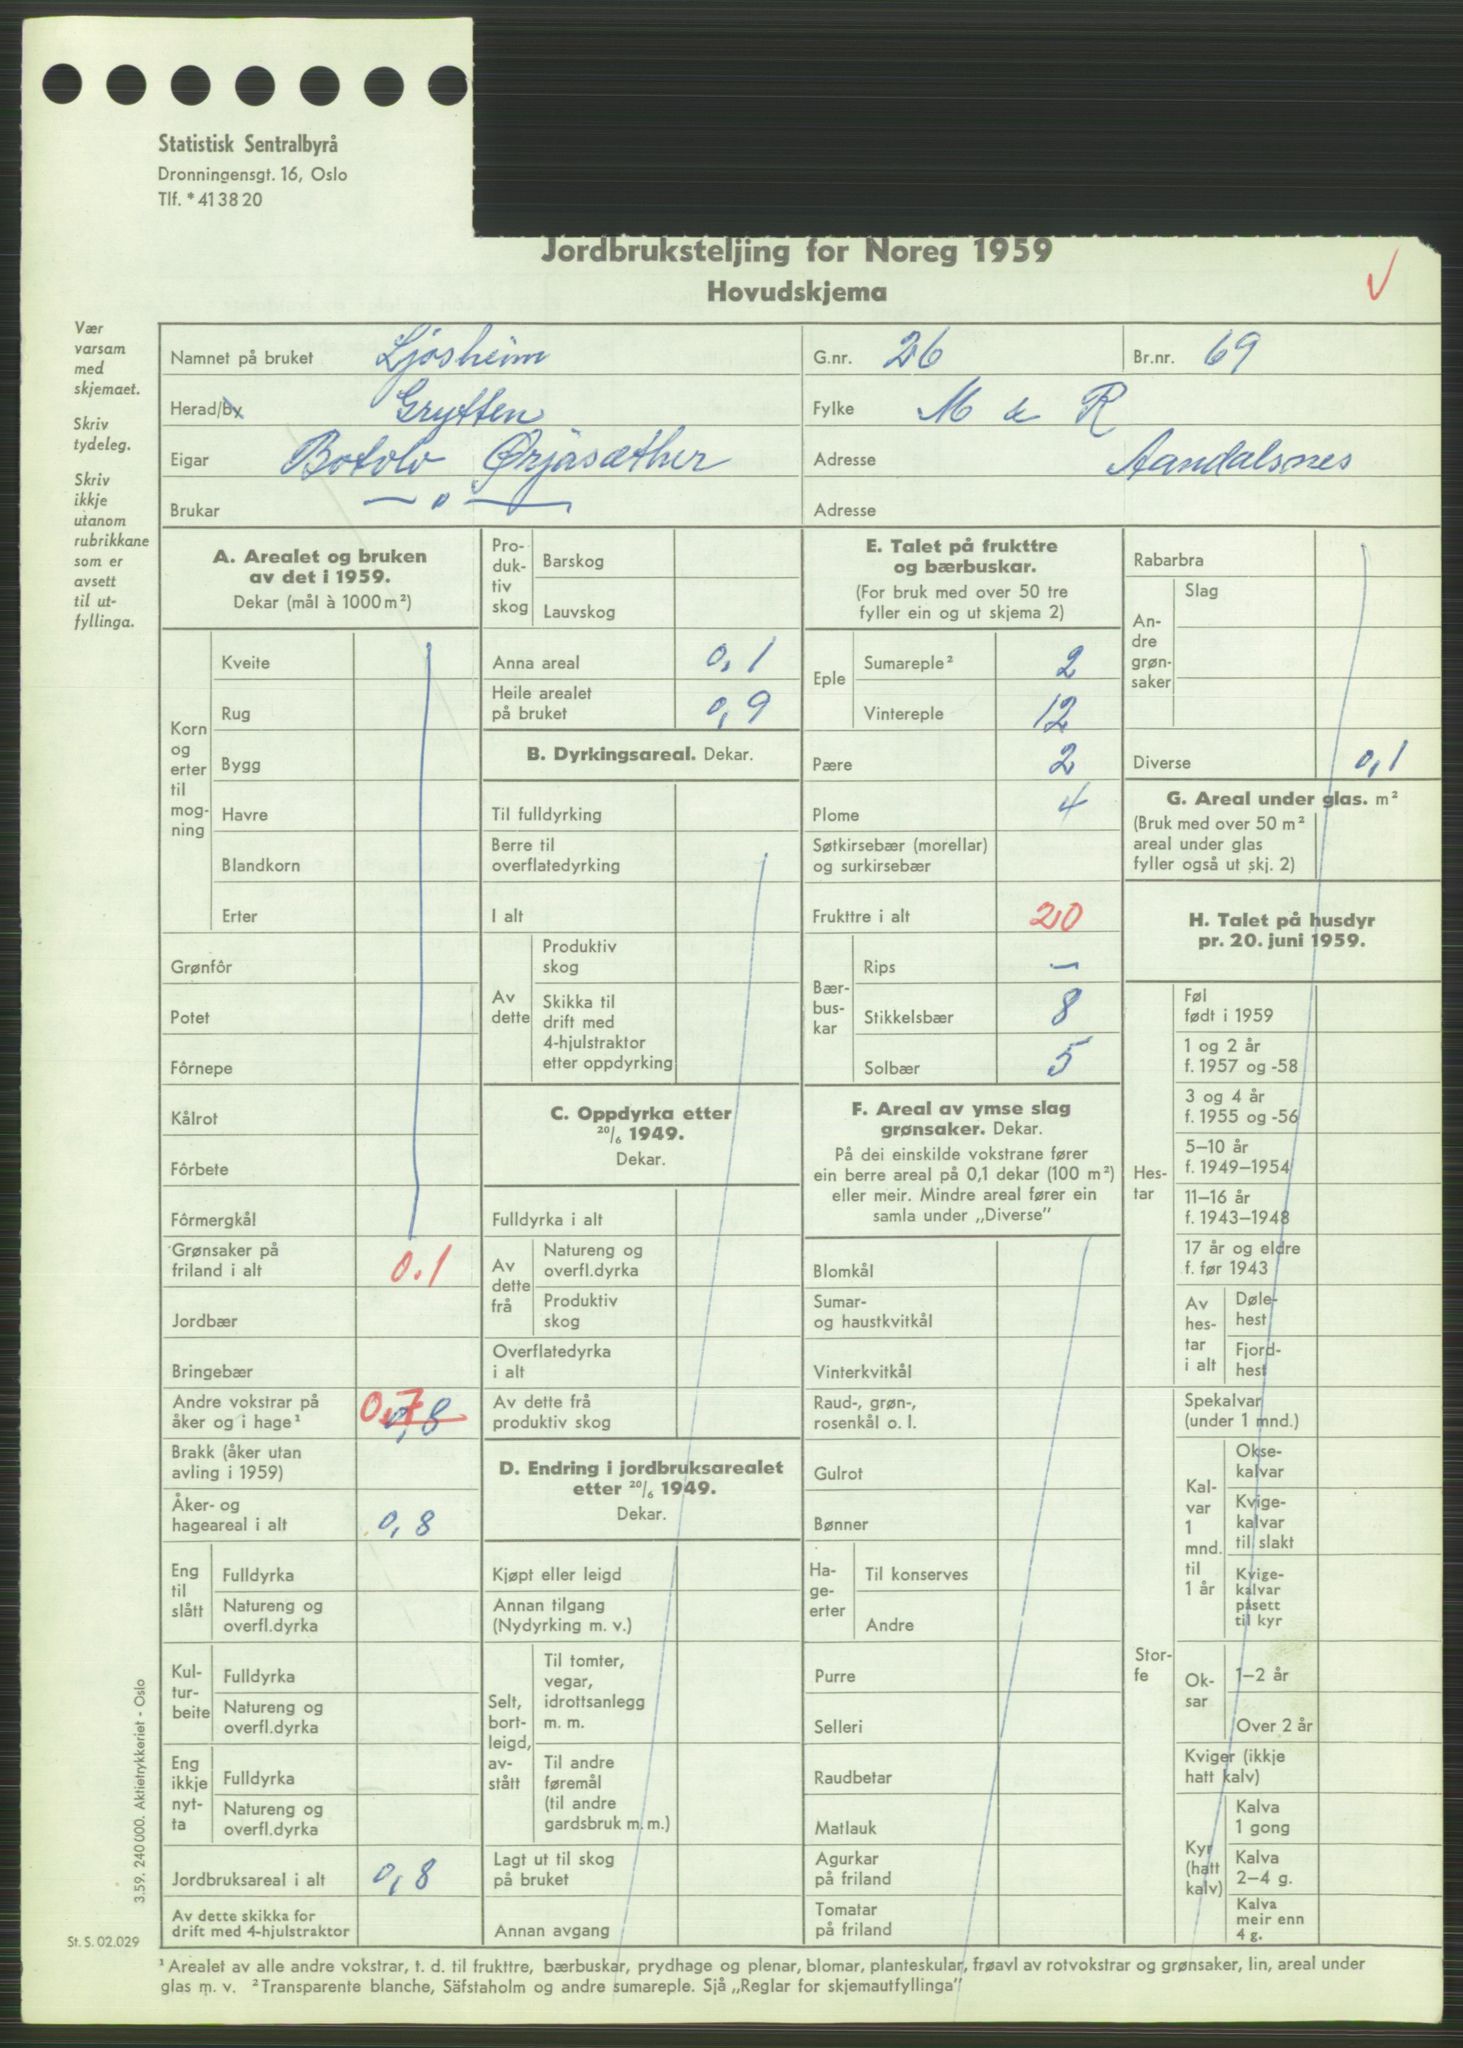 Statistisk Sentralbyrå
Dronningensgt. 16, Oslo
Tlf. * 41 38 20
Jordbruksteljing for Noreg 1959
Hovudskjema
Vær
varsam
med
skjemaet.
Skriv
tydeleg.
Skriv
ikkje
utanom
rubrikkane
som er
avsett
til ut-
fyllinga.
Namnet på bruket Ljosheim G.nr. 26 Br.nr. 69
Herad/by Grytten Fylke M & R
Eigar Botolv Ørjasæther Adresse Aandalsnes
Brukar — " — Adresse
A. Arealet og bruken
av det i 1959.
Dekar (mål à 1000 m²)
Korn
og
erter
til
mog-
ning
Kveite
Rug
Bygg
Havre
Blandkorn
Erter
Grønfôr
Potet
Fôrnepe
Kålrot
Fôrbete
Fôrmergkål
Grønsaker på
friland i alt 0.1
Jordbær
Bringebær
Andre vokstrar på
åker og i hage¹ 0.7 0,8
Brakk (åker utan
avling i 1959)
Åker- og
hageareal i alt 0,8
Eng
til
slått
Fulldyrka
Natureng og
overfl.dyrka
Kul-
tur-
beite
Fulldyrka
Natureng og
overfl.dyrka
Eng
ikkje
nyt-
ta
Fulldyrka
Natureng og
overfl.dyrka
Jordbruksareal i alt 0,8
Av dette skikka for
drift med 4-hjulstraktor
Pro-
duk-
tiv
skog
Barskog
Lauvskog
Anna areal 0,1
Heile arealet
på bruket 0,9
B. Dyrkingsareal. Dekar.
Til fulldyrking
Berre til
overflatedyrking
I alt
Av
dette
Produktiv
skog
Skikka til
drift med
4-hjulstraktor
etter oppdyrking
C. Oppdyrka etter
20/6 1949.
Dekar.
Fulldyrka i alt
Av
dette
frå
Natureng og
overfl.dyrka
Produktiv
skog
Overflatedyrka
i alt
Av dette frå
produktiv skog
D. Endring i jordbruksarealet
etter 20/6 1949.
Dekar.
Kjøpt eller leigd
Annan tilgang
(Nydyrking m. v.)
Selt,
bort-
leigd,
av-
stått
Til tomter,
vegar,
idrottsanlegg
m. m.
Til andre
føremål
(til andre
gardsbruk m. m.)
Lagt ut til skog
på bruket
Annan avgang
E. Talet på frukttre
og bærbuskar.
(For bruk med over 50 tre
fyller ein og ut skjema 2)
Eple
Sumareple² 2
Vintereple 12
Pære 2
Plome 4
Søtkirsebær (morellar)
og surkirsebær
Frukttre i alt 20
Bær-
bus-
kar
Rips –
Stikkelsbær 8
Solbær 5
F. Areal av ymse slag
grønsaker. Dekar.
På dei einskilde vokstrane fører
ein berre areal på 0,1 dekar (100 m²)
eller meir. Mindre areal fører ein
samla under „Diverse"
Blomkål
Sumar-
og haustkvitkål
Vinterkvitkål
Raud-, grøn-,
rosenkål o. l.
Gulrot
Bønner
Ha-
ge-
erter
Til konserves
Andre
Purre
Selleri
Raudbetar
Matlauk
Agurkar
på friland
Tomatar
på friland
Rabarbra
An-
dre
grøn-
saker
Slag
Diverse 0,1
G. Areal under glas. m²
(Bruk med over 50 m²
areal under glas
fyller også ut skj. 2)
H. Talet på husdyr
pr. 20. juni 1959.
Hes-
tar
Føl
født i 1959
1 og 2 år
f. 1957 og -58
3 og 4 år
f. 1955 og -56
5–10 år
f. 1949–1954
11–16 år
f. 1943–1948
17 år og eldre
f. før 1943
Av
hes-
tar
i alt
Døle-
hest
Fjord-
hest
Stor-
fe
Spekalvar
(under 1 mnd.)
Kal-
var
1
mnd.
til
1 år
Okse-
kalvar
Kvige-
kalvar
til slakt
Kvige-
kalvar
påsett
til kyr
Ok-
sar
1–2 år
Over 2 år
Kviger (ikkje
hatt kalv)
Kyr
(hatt
kalv)
Kalva
1 gong
Kalva
2–4 g.
Kalva
meir enn
4 g.
3.59. 240 000. Aktietrykkeriet - Oslo
St. S. 02.029
¹ Arealet av alle andre vokstrar, t. d. til frukttre, bærbuskar, prydhage og plenar, blomar, planteskular, frøavl av rotvokstrar og grønsaker, lin, areal under
glas m. v. ² Transparente blanche, Säfstaholm og andre sumareple. Sjå „Reglar for skjemautfyllinga"